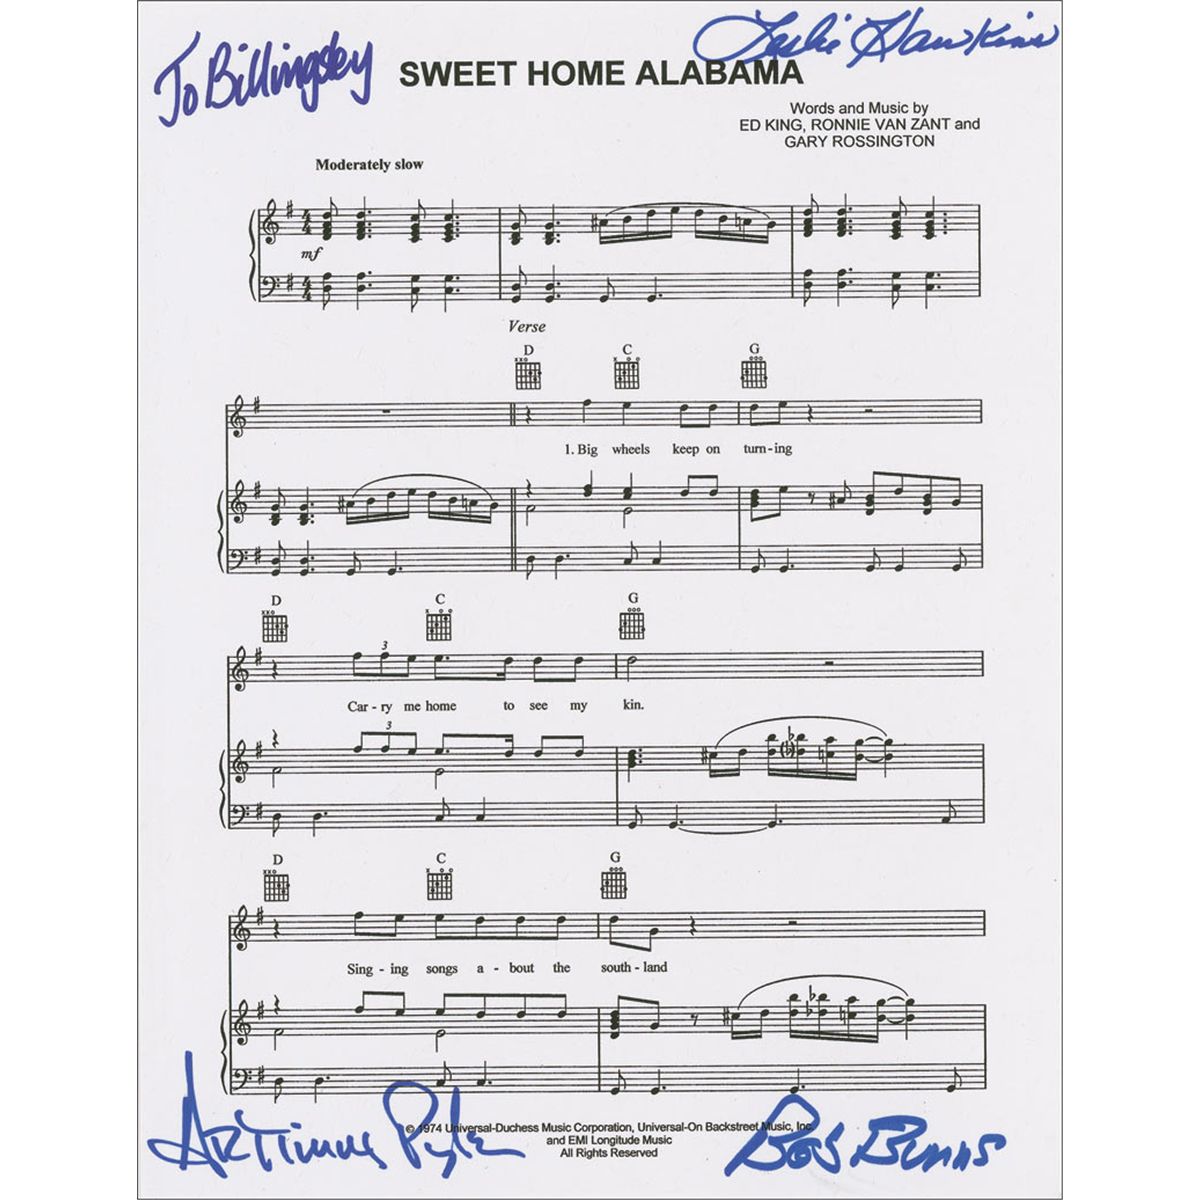 To Billingsley
Leslie Hawkins
SWEET HOME ALABAMA
Words and Music by
ED KING, RONNIE VAN ZANT and
GARY ROSSINGTON
Moderately slow
mf
Verse
D C G
1. Big wheels keep on turn-ing
D C G
3
Car - ry me home to see my kin.
3
D C G
Sing - ing songs a - bout the south - land
Artimus Pyle
Bob Burns
© 1974 Universal-Duchess Music Corporation, Universal-On Backstreet Music, Inc.
and EMI Longitude Music
All Rights Reserved